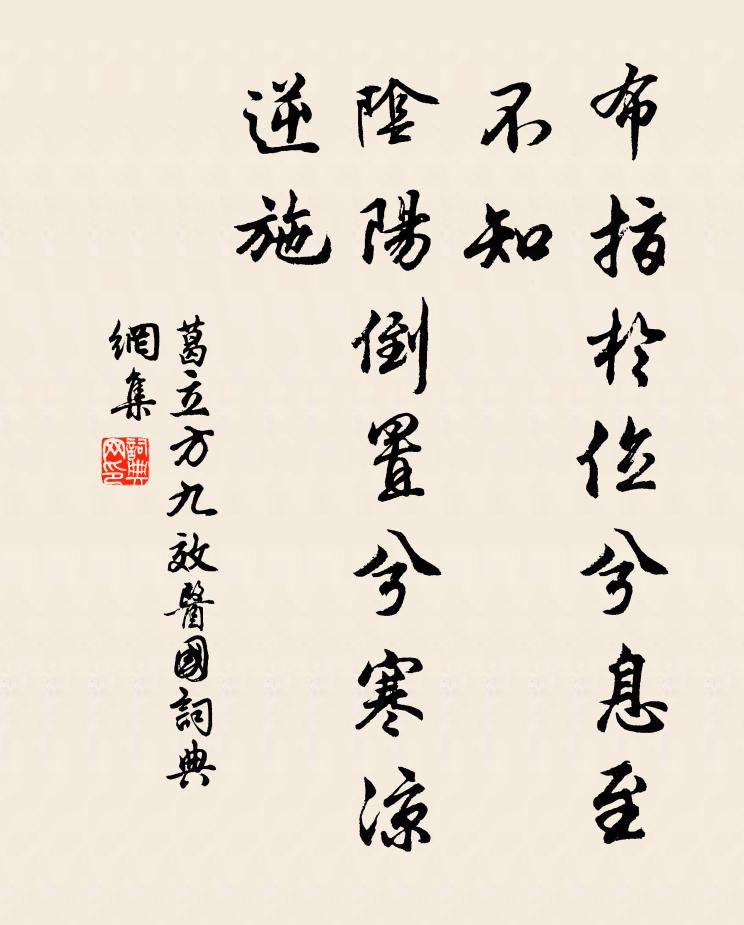 布指於位兮息至
不知
陰陽倒置兮寒涼
逆施
葛立方九效醫國詞典
網集
詞典網印